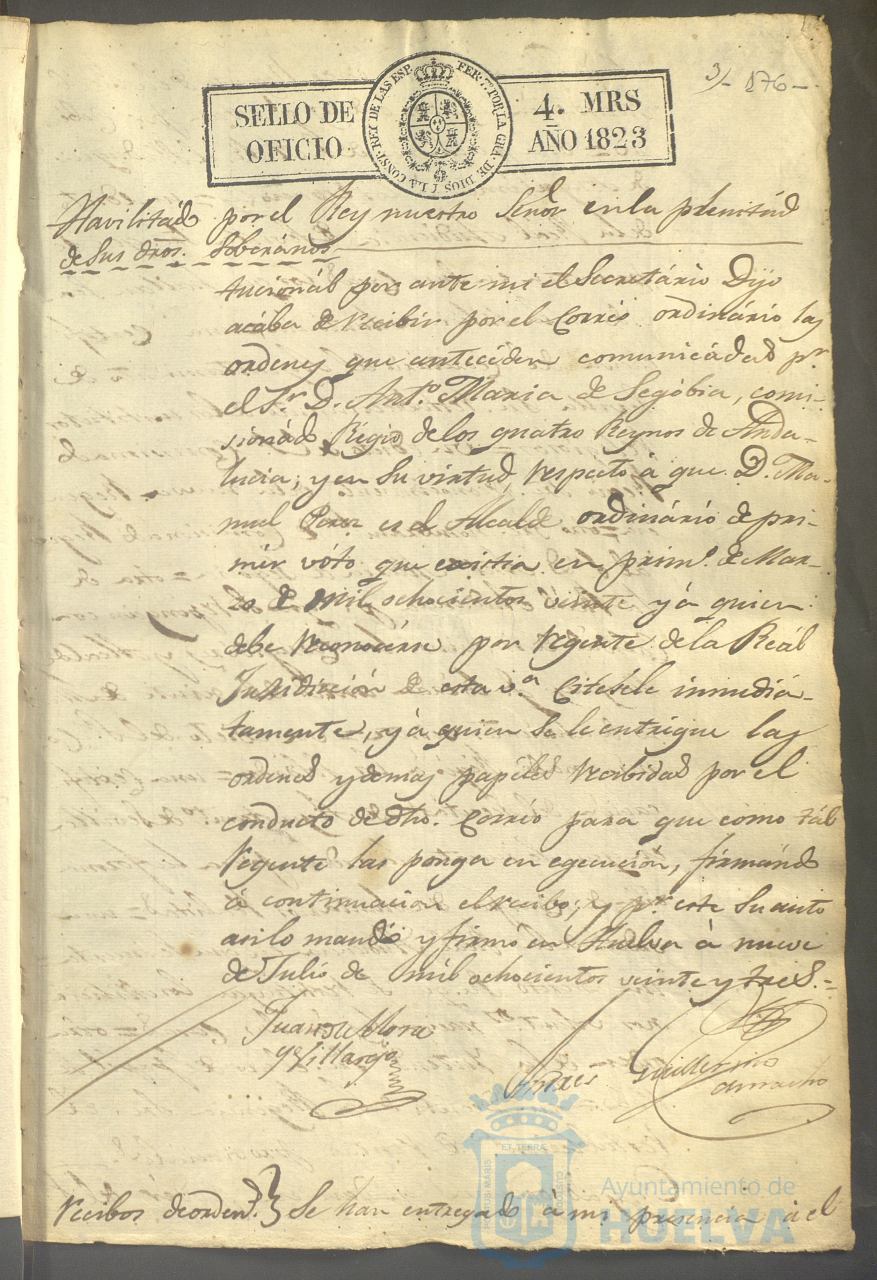 3/- 176-
SELLO DE OFICIO
FER. 7.º POR LA GRA. DE DIOS I LA CONST. REY DE LAS ESP.
4. MRS
AÑO 1823
Havilitado por el Rey nuestro Señor en la plenitud
de sus dros. soberanos
tucionál por ante mi el Secretário Dijo
acába de recibir por el Corréo ordinário las
ordenes que antecéden comunicádas pr.
el Sr. D. Anto. Maria de Segóbia, comi-
sionádo Régio de los quatro Reynos de Anda-
lucia; y en su virtud, respecto á que D. Ma-
nuel Perez es el Alcalde ordinário de pri-
mér vóto que existia en prim.º de Mar-
zo de mil ochocientos veinte y á quien
debe reconocérse por regente de la Reál
Jurisdicción de esta v.ª Citesele inmediá-
tamente, y á quien se le entrégue las
ordenes y demas papéles recibidas por el
conducto de dho. Corréo para que como tál
Regente las ponga en egecución, firmándo
á continuacion el recibo; y pr. este su auto
asi lo mandó y firmó en Huelva á nueve
de Julio de mil ochocientos veinte y tres.=
Juan de Mora
y Villarejo
Guillermo
Camacho
Recibos de orden.s } Se han entregado á mi presencia á el
ET TERRAE
PORTUS MARIS
CUSTODIA
Ayuntamiento de
HUELVA